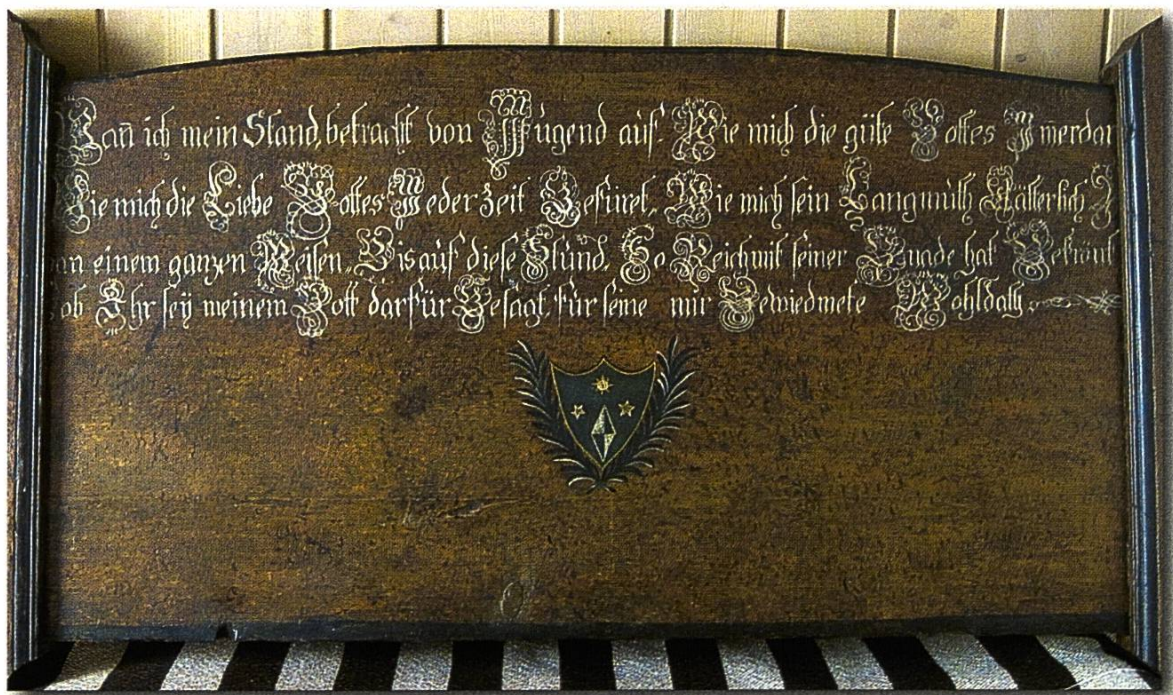 Wan̄ ich mein Stand, betracht von Jugend auf. Wie mich die güte Gottes Im̄erdar
Wie mich die Liebe Gottes Jeder Zeit Gefüret, Wie mich sein Langmuth Vätterlich
an einem ganzen Reisen, Bis auf diese Stund, So Reich mit seiner Gnade hat Bekrönt
ob Ihr sey meinem Gott darfür Gesagt, für seine mir Gewiedmete Wohldath,